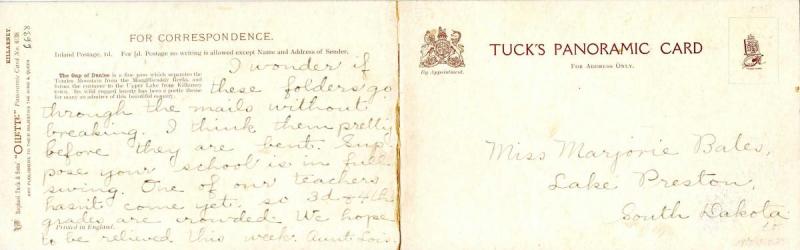 KILLARNEY.
Raphael Tuck & Sons' "OILETTE" Panoramic Card No.
ART PUBLISHERS TO THEIR MAJESTIES THE KING & QUEEN
6638
FOR CORRESPONDENCE.
Inland Postage, 1d. For ½d. Postage no writing is allowed except Name and Address of Sender.
The Gap of Dunloe is a fine pass which separates the
Toomies Mountain from the Macgillicuddy Reeks, and
forms the entrance to the Upper Lake from Killarney
town. Its wild rugged beauty has been a poetic theme
for many an admirer of this beautiful country.
I wonder if
these folders go
through the mails without
breaking. I think them pretty
before they are bent. Sup-
pose your school is in full
swing. One of our teachers
hasn't come yet. so 3d & 4th
grades are crowded. We hope
to be relieved this week. Aunt Lois.
Printed in England.
By Appointment.
TUCK'S PANORAMIC CARD
FOR ADDRESS ONLY.
Miss Marjorie Bates,
Lake Preston,
South Dakota